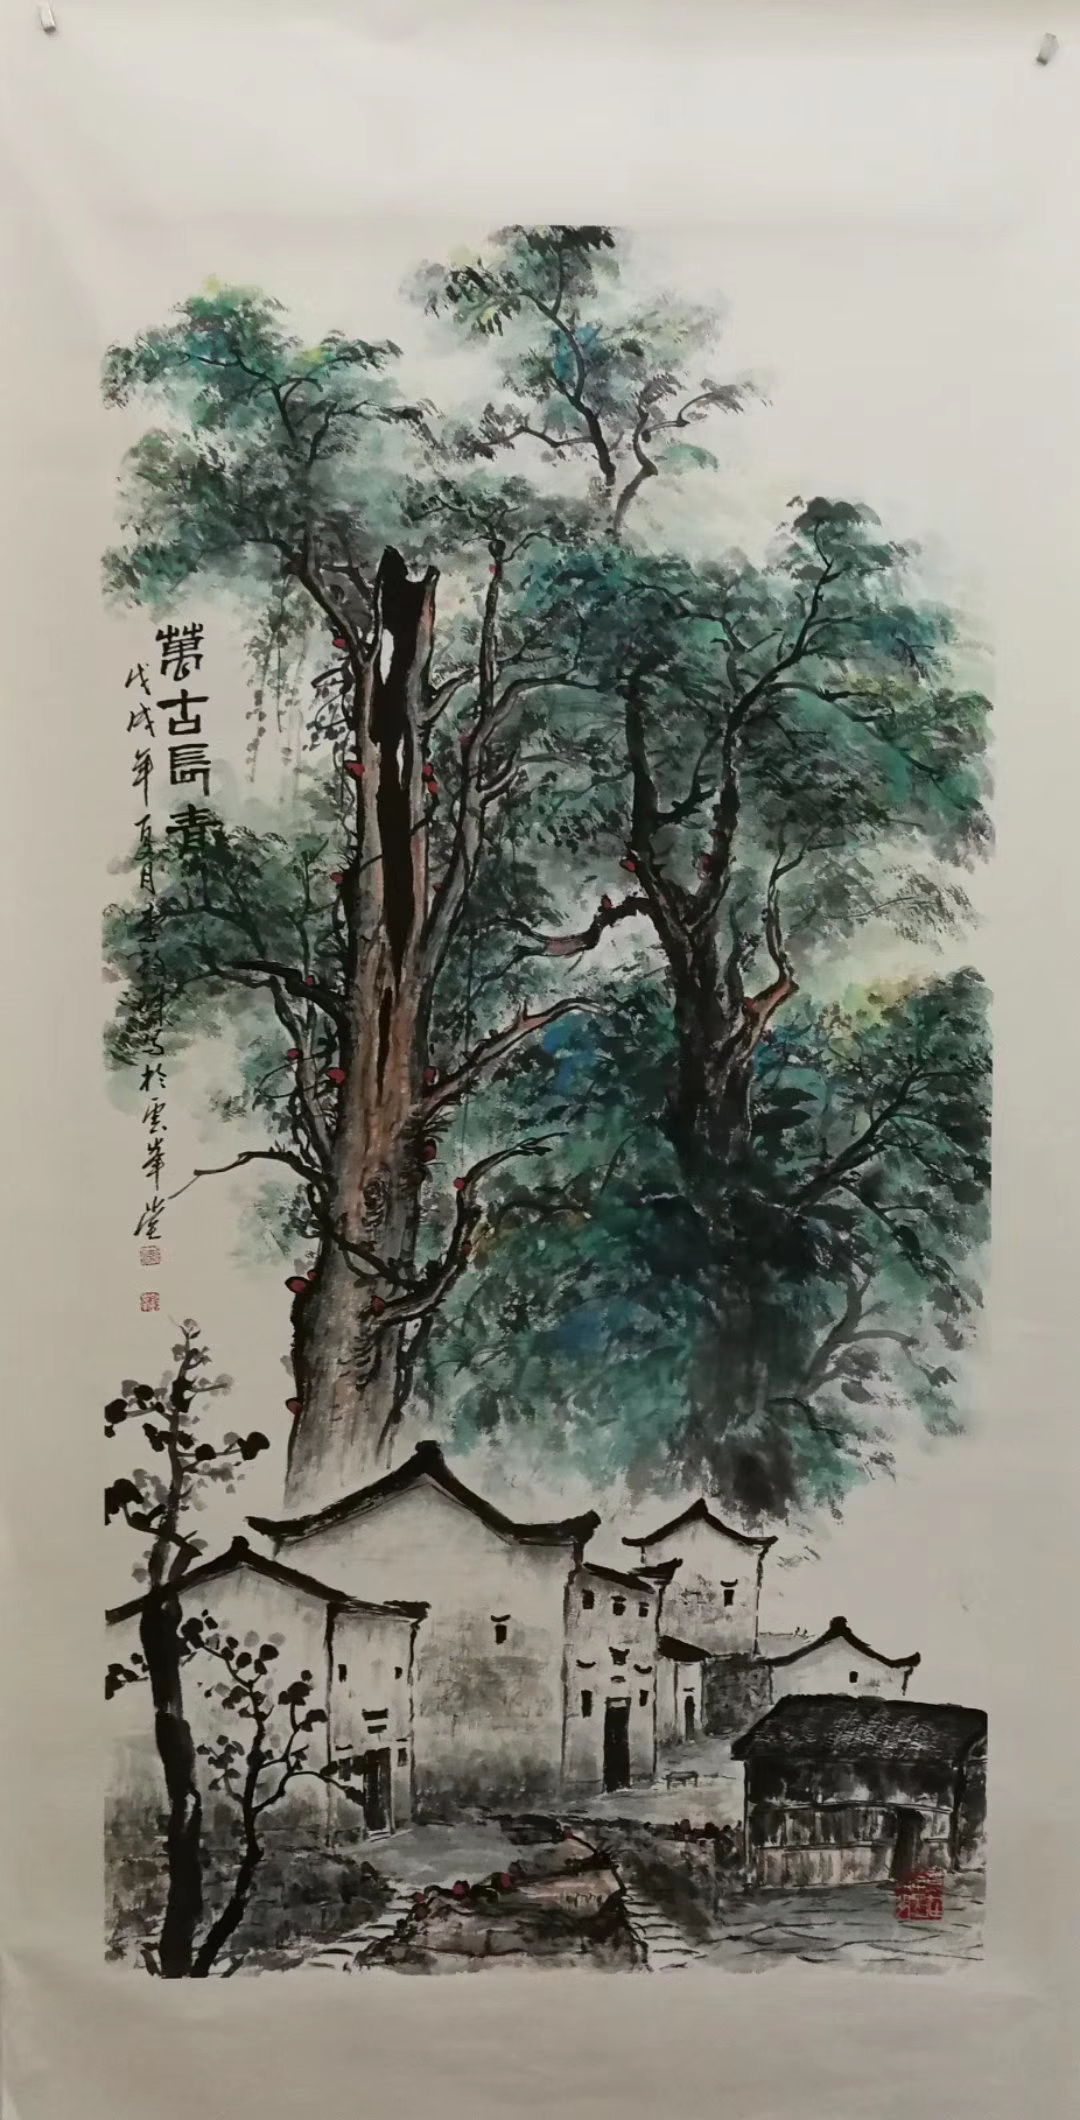 萬古長青
戊戌年夏月李
寫於雲峯堂